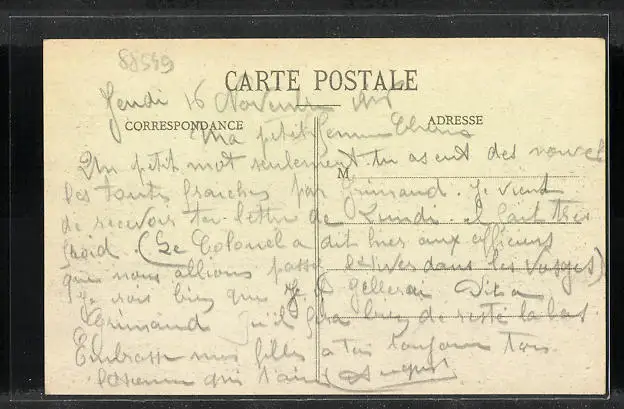 88549
CARTE POSTALE
Jeudi 16 Novembre
CORRESPONDANCE
ADRESSE
Ma petite femme
M
Un petit mot seulement tu as eut des nouvel
les toutes fraiches par Grimaud. Je vient
de recevoir ta lettre de Lundi. il fait très
froid. (Le Colonel a dit hier aux officiers
que nous allions passer l'hiver dans les Vosges)
Je vois bien que je gellerai Dit a
Grimaud qu'il fera bien de reste la bas
Embrasse mes filles a toi toujours ton
qui t'aime August